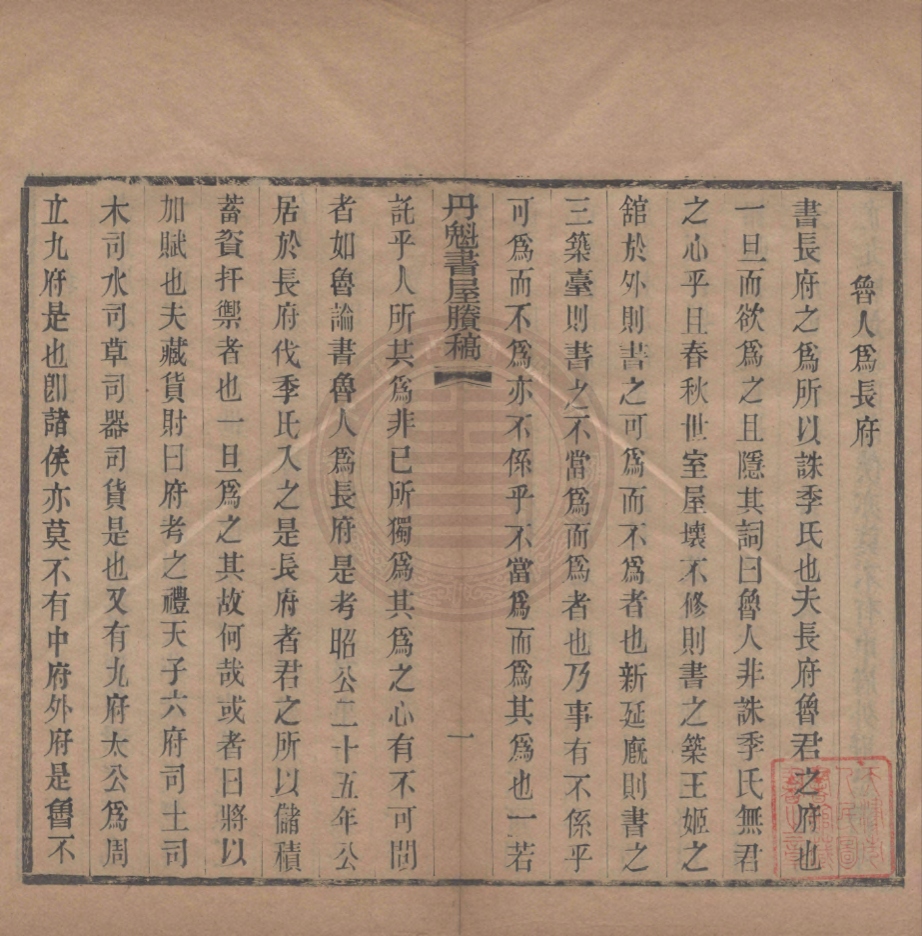 魯人爲長府
書長府之爲所以誅季氏也夫長府魯君之府也
一旦而欲爲之且隱其詞曰魯人非誅季氏無君
之心乎且春秋世室屋壞不修則書之築王姬之
舘於外則書之可爲而不爲者也新延廐則書之
三築臺則書之不當爲而爲者也乃事有不係乎
可爲而不爲亦不係乎不當爲而爲其爲也一若
丹魁書屋賸稿
一
託乎人所共爲非已所獨爲其爲之心有不可問
者如魯論書魯人爲長府是考昭公二十五年公
居於長府伐季氏入之是長府者君之所以儲積
蓄資扞禦者也一旦爲之其故何哉或者曰將以
加賦也夫藏貨財曰府考之禮天子六府司土司
木司水司草司器司貨是也又有九府太公爲周
立九府是也卽諸侯亦莫不有中府外府是魯不